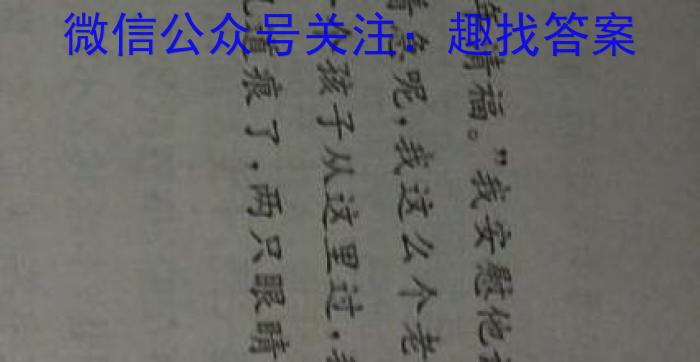 微信公众号关注：趣找答案
清福。”我安慰他
呢，我这么个老
孩子从这里过，
痕了，两只眼睛